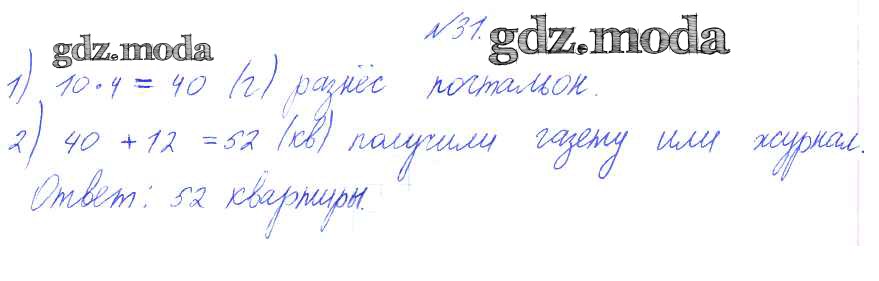 №31.
gdz.moda gdz.moda
1) 10·4 = 40 (г) разнёс почтальон.
2) 40 + 12 = 52 (кв) получили газету или журнал.
Ответ: 52 квартиры.